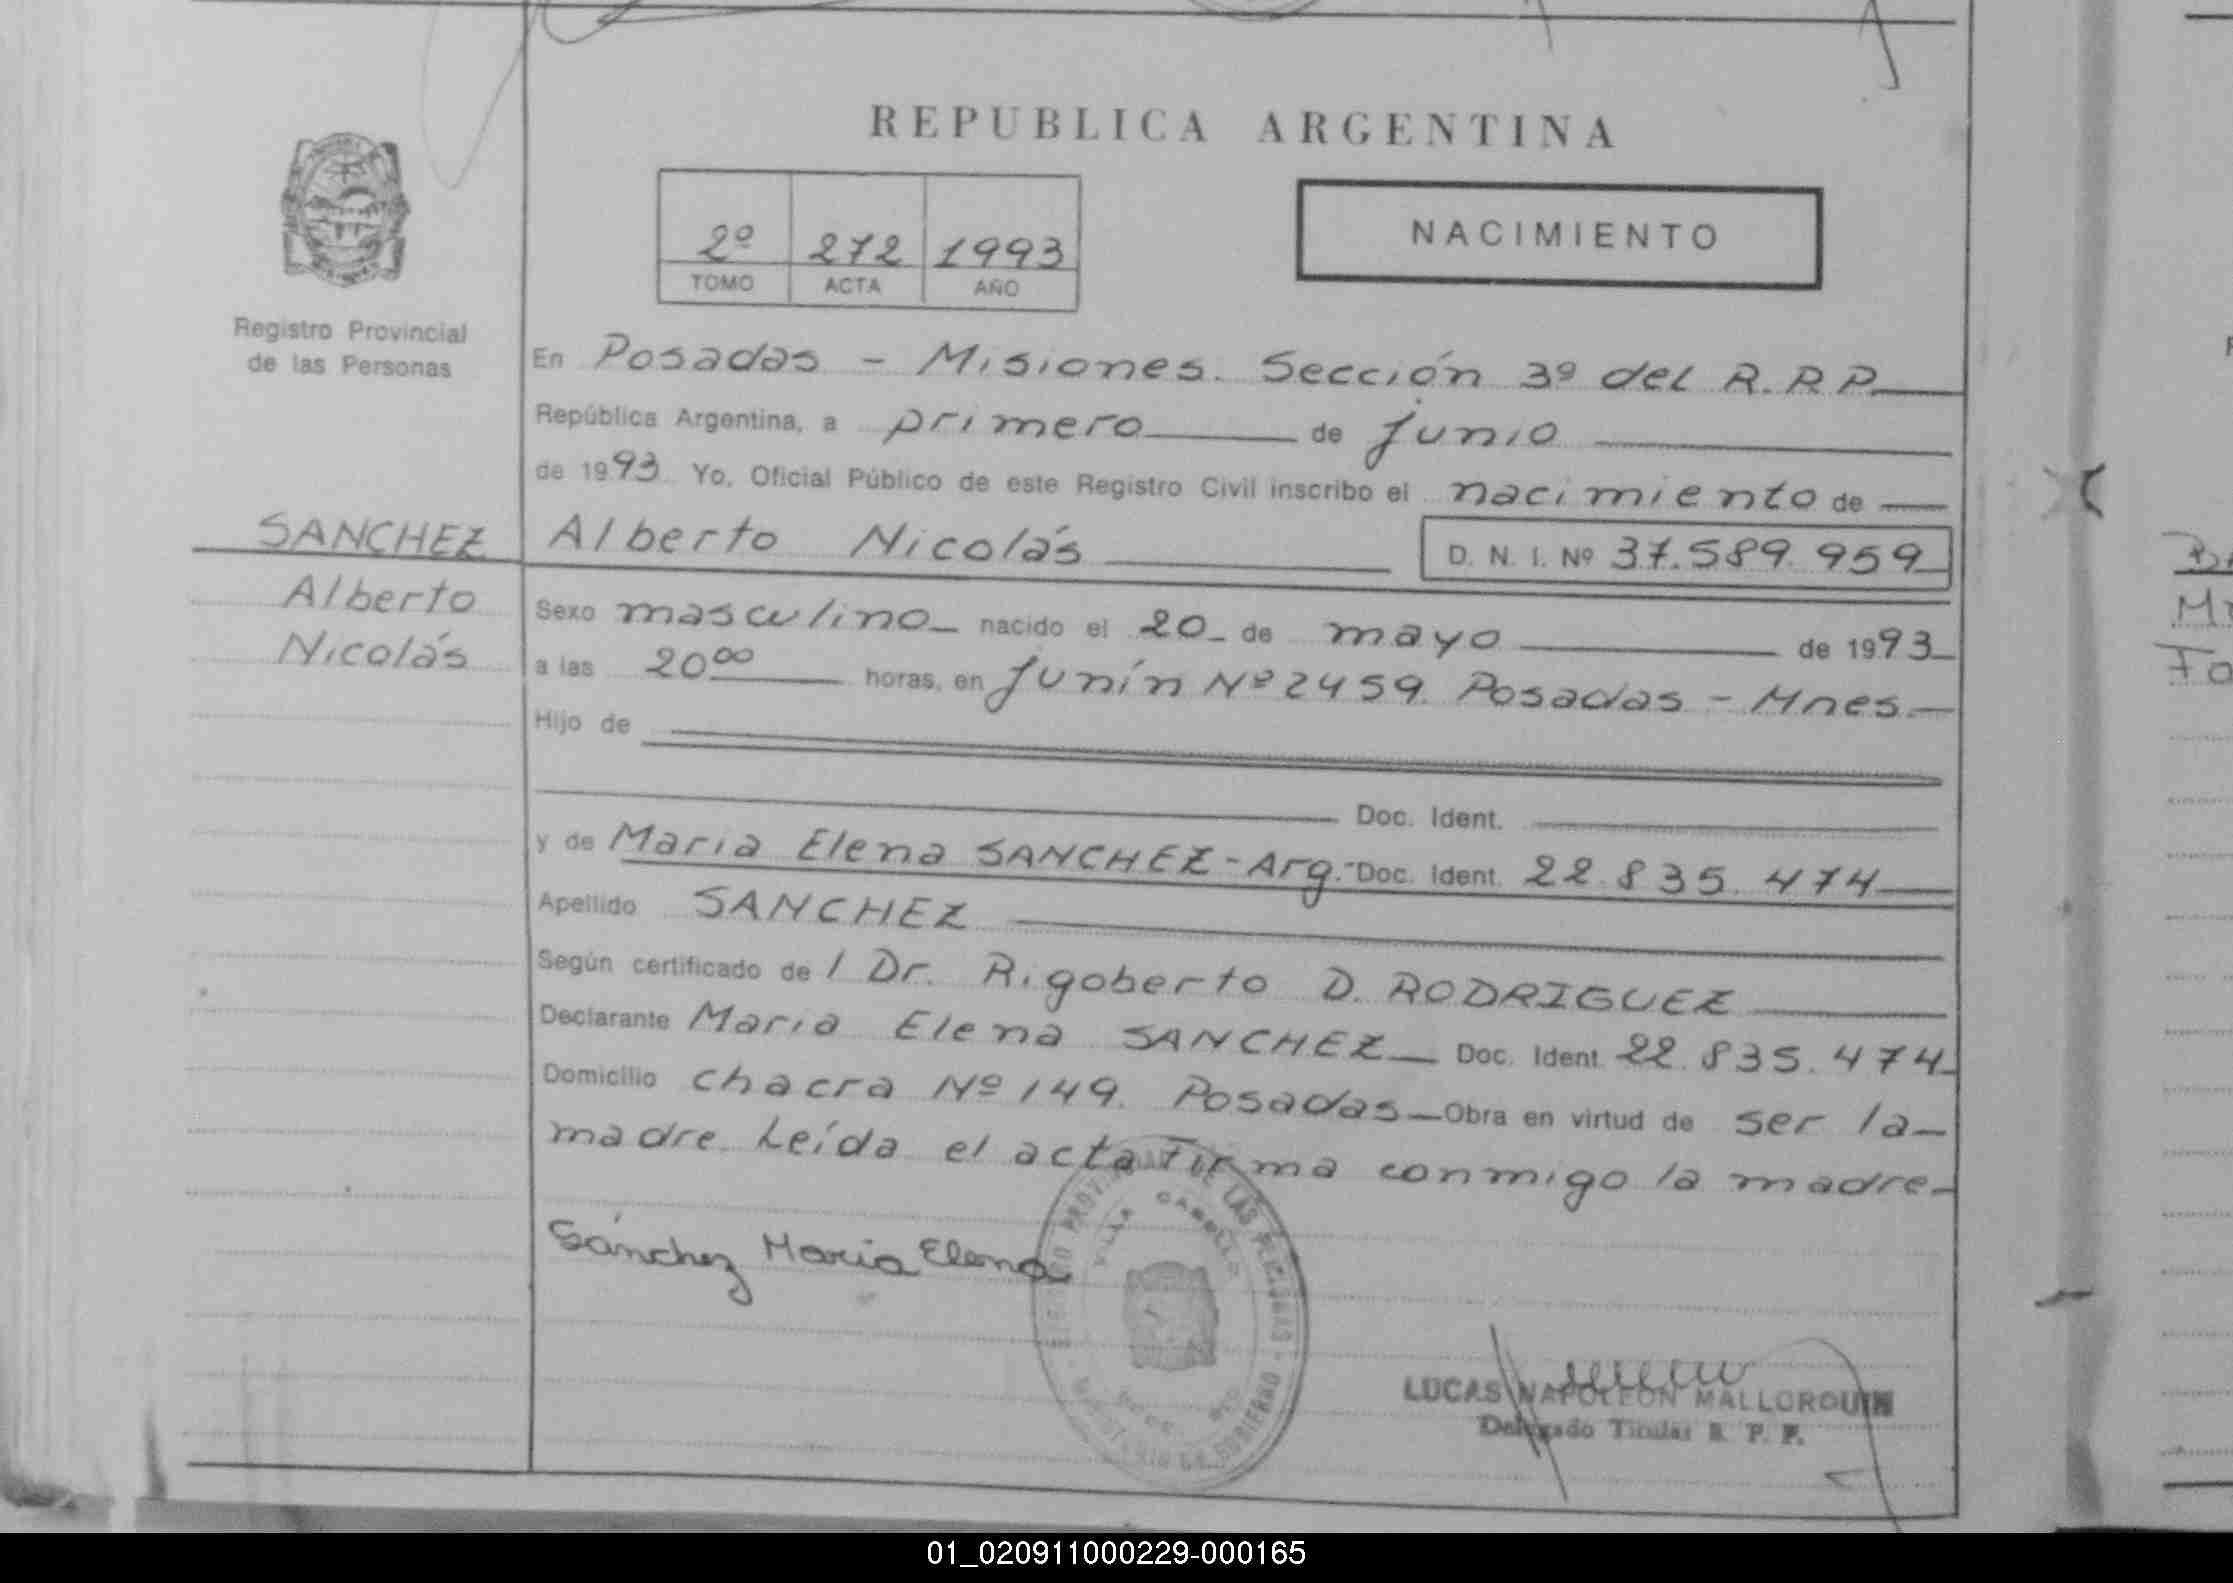 REPUBLICA ARGENTINA
2º 272 1993
TOMO ACTA AÑO
NACIMIENTO
Registro Provincial
de las Personas
En Posadas - Misiones. Sección 3º del R.P.P.
República Argentina, a primero de junio
de 1993 Yo, Oficial Público de este Registro Civil inscribo el nacimiento de
SANCHEZ Alberto Nicolás D. N. I. Nº 37.589.959
Alberto
Nicolás
Sexo masculino nacido el 20 de mayo de 1993
a las 20⁰⁰ horas, en Junín Nº 2459. Posadas - Mnes.
Hijo de
Doc. Ident.
y de Maria Elena SANCHEZ - Arg. - Doc. Ident. 22.835.474
Apellido SANCHEZ
Según certificado de l Dr. Rigoberto D. RODRIGUEZ
Declarante Maria Elena SANCHEZ Doc. Ident. 22.835.474
Domicilio chacra Nº 149. Posadas Obra en virtud de ser la
madre. Leída el acta firma conmigo la madre
Sánchez Maria Elena
VILLA CABELLO
LUCAS NAPOLEON MALLORQUIN
Delegado Titular R. P. P.
01_020911000229-000165